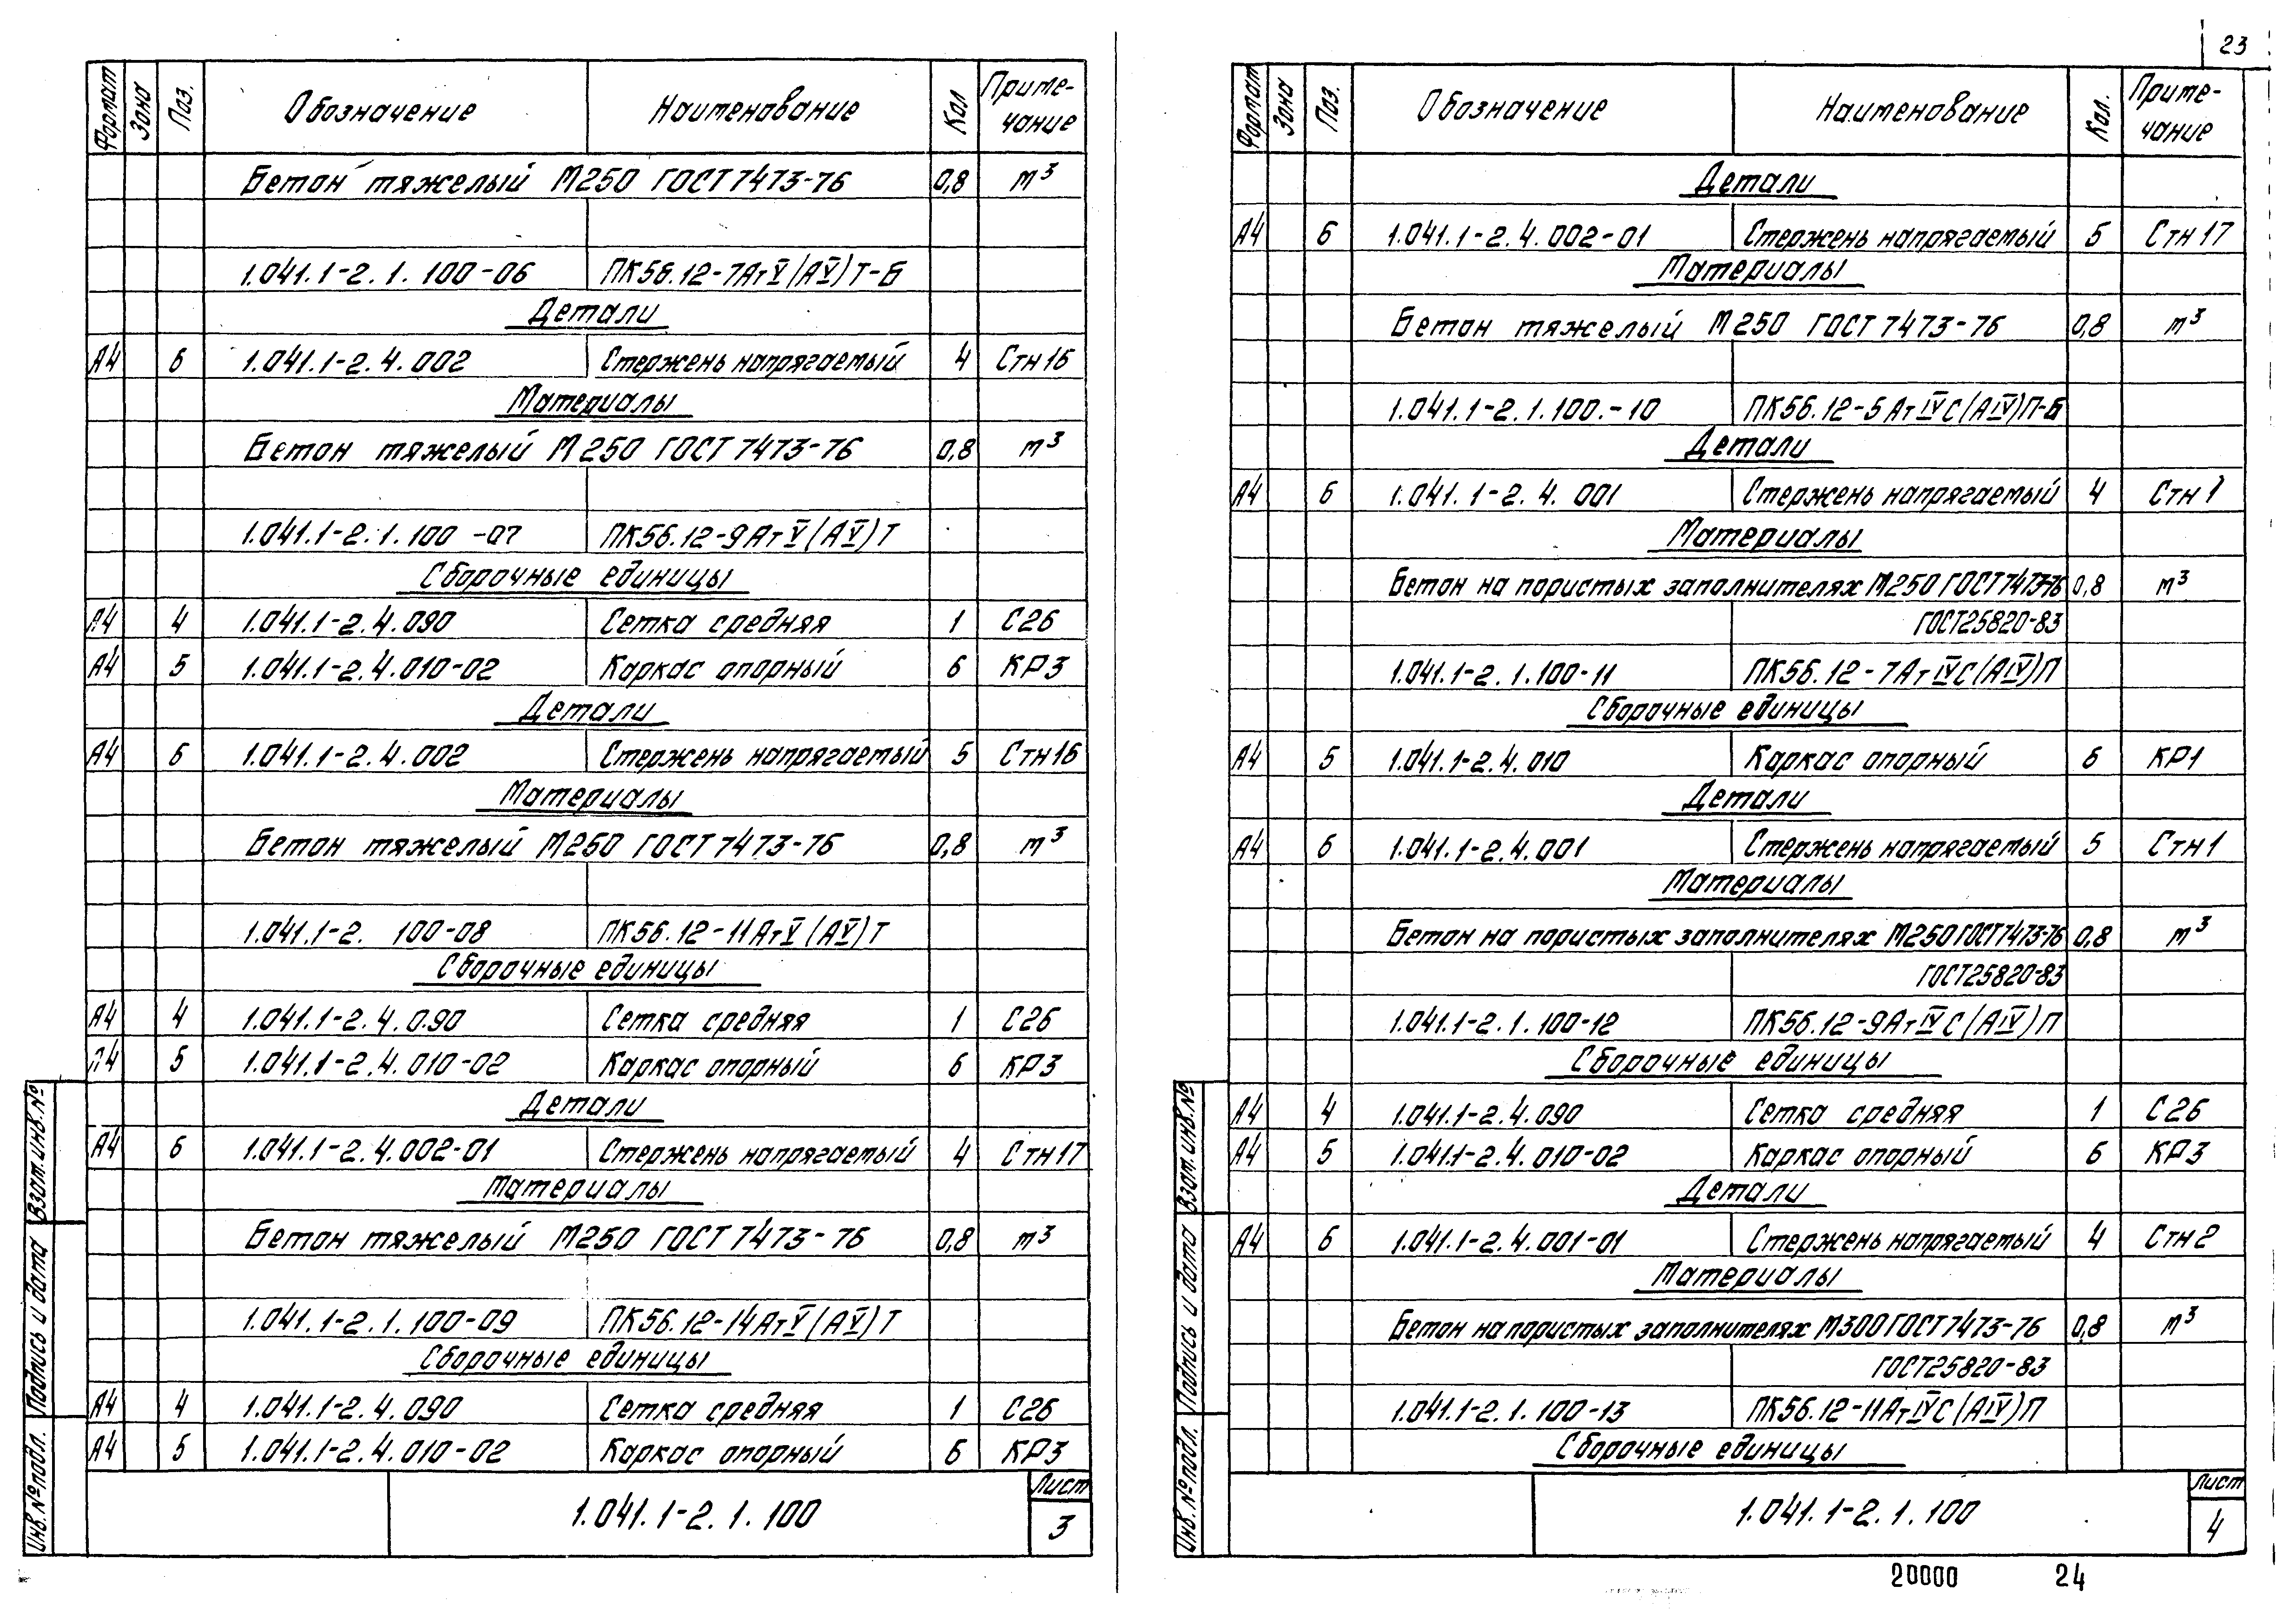 Формат Зона Поз. Обозначение Наименование Кол Приме-
чание
Бетон тяжелый М250 ГОСТ 7473-76 0,8 м³
1.041.1-2.1.100-06 ПК56.12-7АтV(АV)Т-Б
Детали
А4 6 1.041.1-2.4.002 Стержень напрягаемый 4 Стн16
Материалы
Бетон тяжелый М250 ГОСТ 7473-76 0,8 м³
1.041.1-2.1.100-07 ПК56.12-9АтV(АV)Т
Сборочные единицы
А4 4 1.041.1-2.4.090 Сетка средняя 1 С26
А4 5 1.041.1-2.4.010-02 Каркас опорный 6 КР3
Детали
А4 6 1.041.1-2.4.002 Стержень напрягаемый 5 Стн16
Материалы
Бетон тяжелый М250 ГОСТ 7473-76 0,8 м³
1.041.1-2. 100-08 ПК56.12-11АтV(АV)Т
Сборочные единицы
А4 4 1.041.1-2.4.090 Сетка средняя 1 С26
А4 5 1.041.1-2.4.010-02 Каркас опорный 6 КР3
Детали
А4 6 1.041.1-2.4.002-01 Стержень напрягаемый 4 Стн17
Материалы
Бетон тяжелый М250 ГОСТ 7473-76 0,8 м³
1.041.1-2.1.100-09 ПК56.12-14АтV(АV)Т
Сборочные единицы
А4 4 1.041.1-2.4.090 Сетка средняя 1 С26
А4 5 1.041.1-2.4.010-02 Каркас опорный 6 КР3
Инв.№подл. Подпись и дата Взам.инв.№
1.041.1-2.1.100
Лист
3
23
Формат Зона Поз. Обозначение Наименование Кол. Приме-
чание
Детали
А4 6 1.041.1-2.4.002-01 Стержень напрягаемый 5 Стн17
Материалы
Бетон тяжелый М250 ГОСТ 7473-76 0,8 м³
1.041.1-2.1.100.-10 ПК56.12-5АтIVС(АIV)П-Б
Детали
А4 6 1.041.1-2.4.001 Стержень напрягаемый 4 Стн1
Материалы
Бетон на пористых заполнителях М250 ГОСТ 7473-76 0,8 м³
ГОСТ25820-83
1.041.1-2.1.100-11 ПК56.12-7АтIVС(АIV)П
Сборочные единицы
А4 5 1.041.1-2.4.010 Каркас опорный 6 КР1
Детали
А4 6 1.041.1-2.4.001 Стержень напрягаемый 5 Стн1
Материалы
Бетон на пористых заполнителях М250 ГОСТ 7473-76 0,8 м³
ГОСТ25820-83
1.041.1-2.1.100-12 ПК56.12-9АтIVС(АIV)П
Сборочные единицы
А4 4 1.041.1-2.4.090 Сетка средняя 1 С26
А4 5 1.041.1-2.4.010-02 Каркас опорный 6 КР3
Детали
А4 6 1.041.1-2.4.001-01 Стержень напрягаемый 4 Стн2
Материалы
Бетон на пористых заполнителях М300 ГОСТ 7473-76 0,8 м³
ГОСТ25820-83
1.041.1-2.1.100-13 ПК56.12-11АтIVС(АIV)П
Сборочные единицы
Инв.№подл. Подпись и дата Взам.инв.№
1.041.1-2.1.100
Лист
4
20000 24